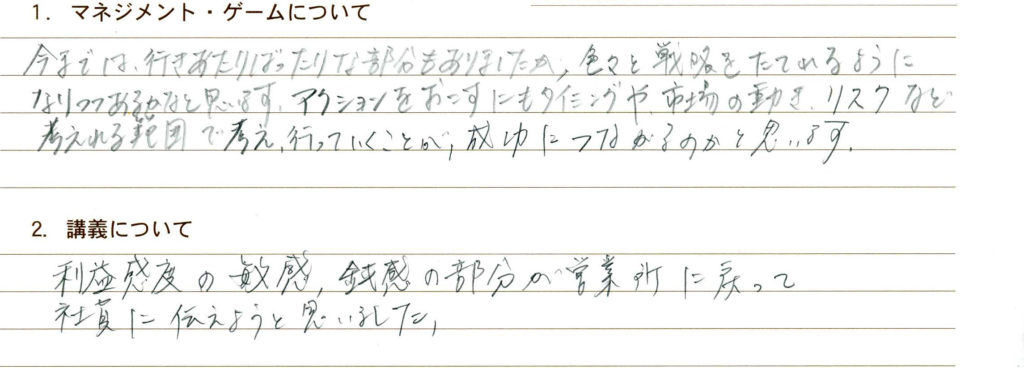 1. マネジメント・ゲームについて
今までは、行きあたりばったりな部分もありましたが、色々と戦略をたてれるように
なりつつあるかなと思います。アクションをおこすにもタイミングや、市場の動き、リスクなど
考えれる範囲で考え、行っていくことが、成功につながるのかと思います。
2. 講義について
利益感度の敏感、鈍感の部分が営業所に戻って
社員に伝えようと思いました。